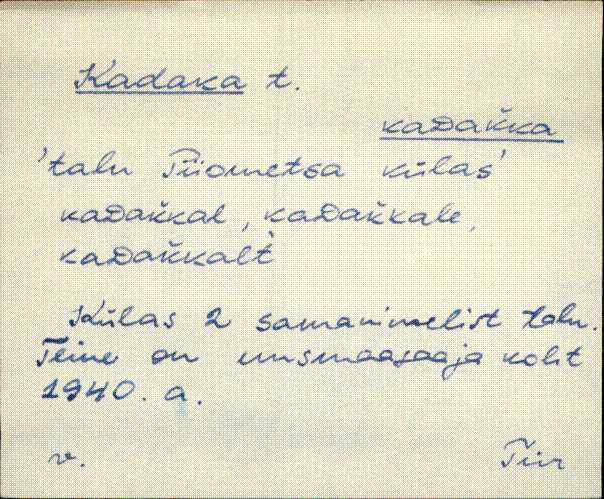 Kadaka t.
kaᴅak̆ka
'talu Piiometsa külas'
kaᴅak̆kal, kaᴅak̆kale,
kaᴅak̆kalt̀
Külas 2 samanimelist talu.
Teine on uusmaasaaja koht
1940. a.
v. Tiir